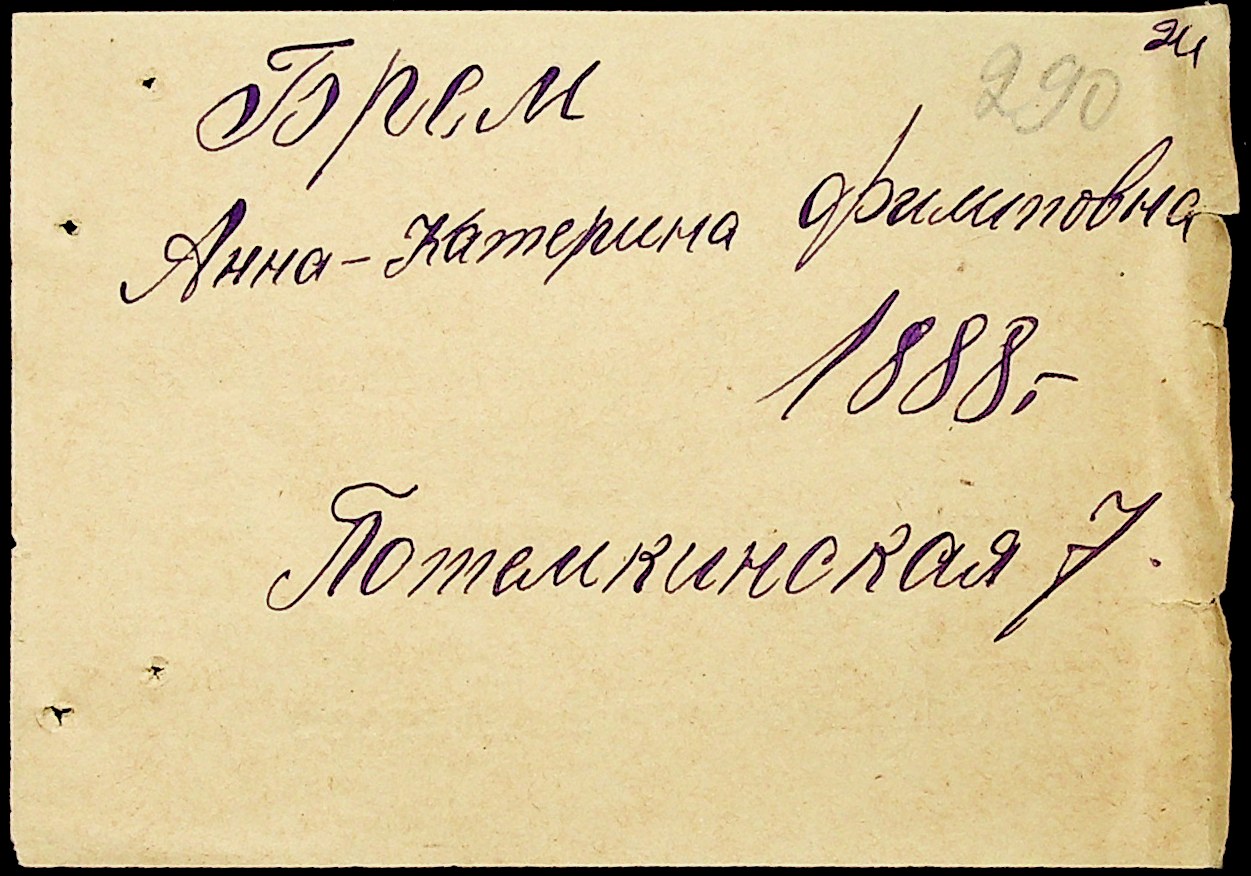 290
Брем
Анна-Катерина Филиповна
1888,-
Потемкинская 7.